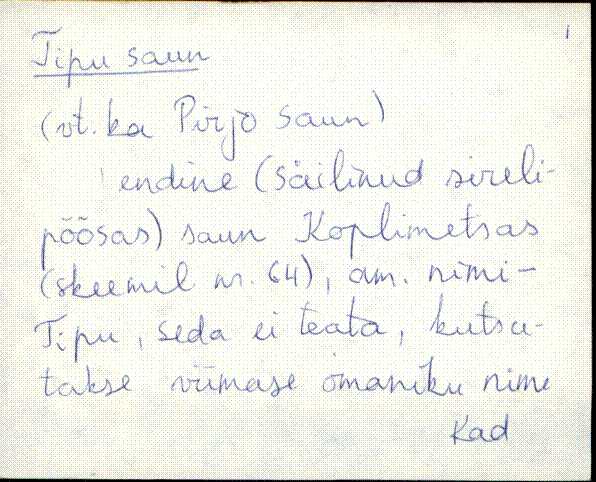 1
Tipu saun
(vt. ka Pirjo saun)
endine (säilinud sireli-
põõsas) saun Koplimetsas
(skeemil nr. 64), am. nimi-
Tipu, seda ei teata, kutsu-
takse viimase omaniku nime
Kad